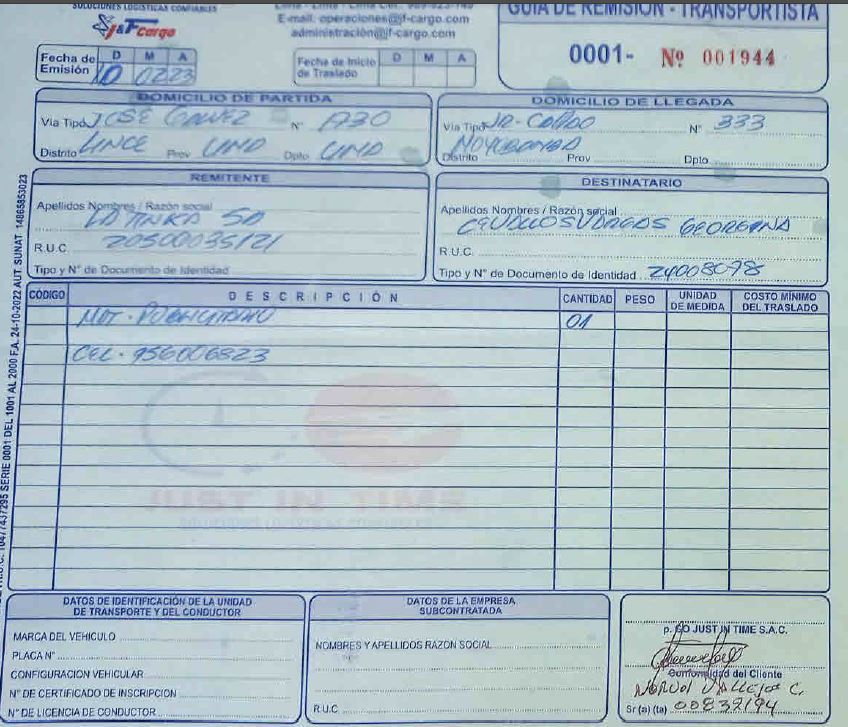 SOLUCIONES LOGISTICAS CONFIABLES
J&F Cargo
E-mail: operaciones@jf-cargo.com
administración@jf-cargo.com
GUIA DE REMISION - TRANSPORTISTA
0001- Nº 001944
Fecha de Emisión D M A
10 02 23
Fecha de Inicio de Traslado D M A
DOMICILIO DE PARTIDA
Via Tipo JOSE GALVEZ Nº 1730
Distrito LINCE Prov LIMA Dpto LIMA
DOMICILIO DE LLEGADA
Via Tipo JR. Nº 333
Distrito MOYOBAMBA Prov Dpto
REMITENTE
Apellidos Nombres / Razón social
LA TINKA SA
R.U.C. 20500035121
Tipo y N° de Documento de Identidad
DESTINATARIO
Apellidos Nombres / Razón social
GEORGINA
R.U.C.
Tipo y N° de Documento de Identidad
CÓDIGO DESCRIPCIÓN CANTIDAD PESO UNIDAD DE MEDIDA COSTO MÍNIMO DEL TRASLADO
MAT. PUBLICITARIO 01
CEL. 956006823
SERIE 0001 DEL 1001 AL 2000 F.A. 24-10-2022 AUT. SUNAT 14865853023
DATOS DE IDENTIFICACIÓN DE LA UNIDAD
DE TRANSPORTE Y DEL CONDUCTOR
MARCA DEL VEHICULO
PLACA Nº
CONFIGURACION VEHICULAR
Nº DE CERTIFICADO DE INSCRIPCION
Nº DE LICENCIA DE CONDUCTOR
DATOS DE LA EMPRESA
SUBCONTRATADA
NOMBRES Y APELLIDOS RAZON SOCIAL
R.U.C.
p. GO JUST IN TIME S.A.C.
Conformidad del Cliente
VALLEJOS C.
Sr (a) (ta) 00837194